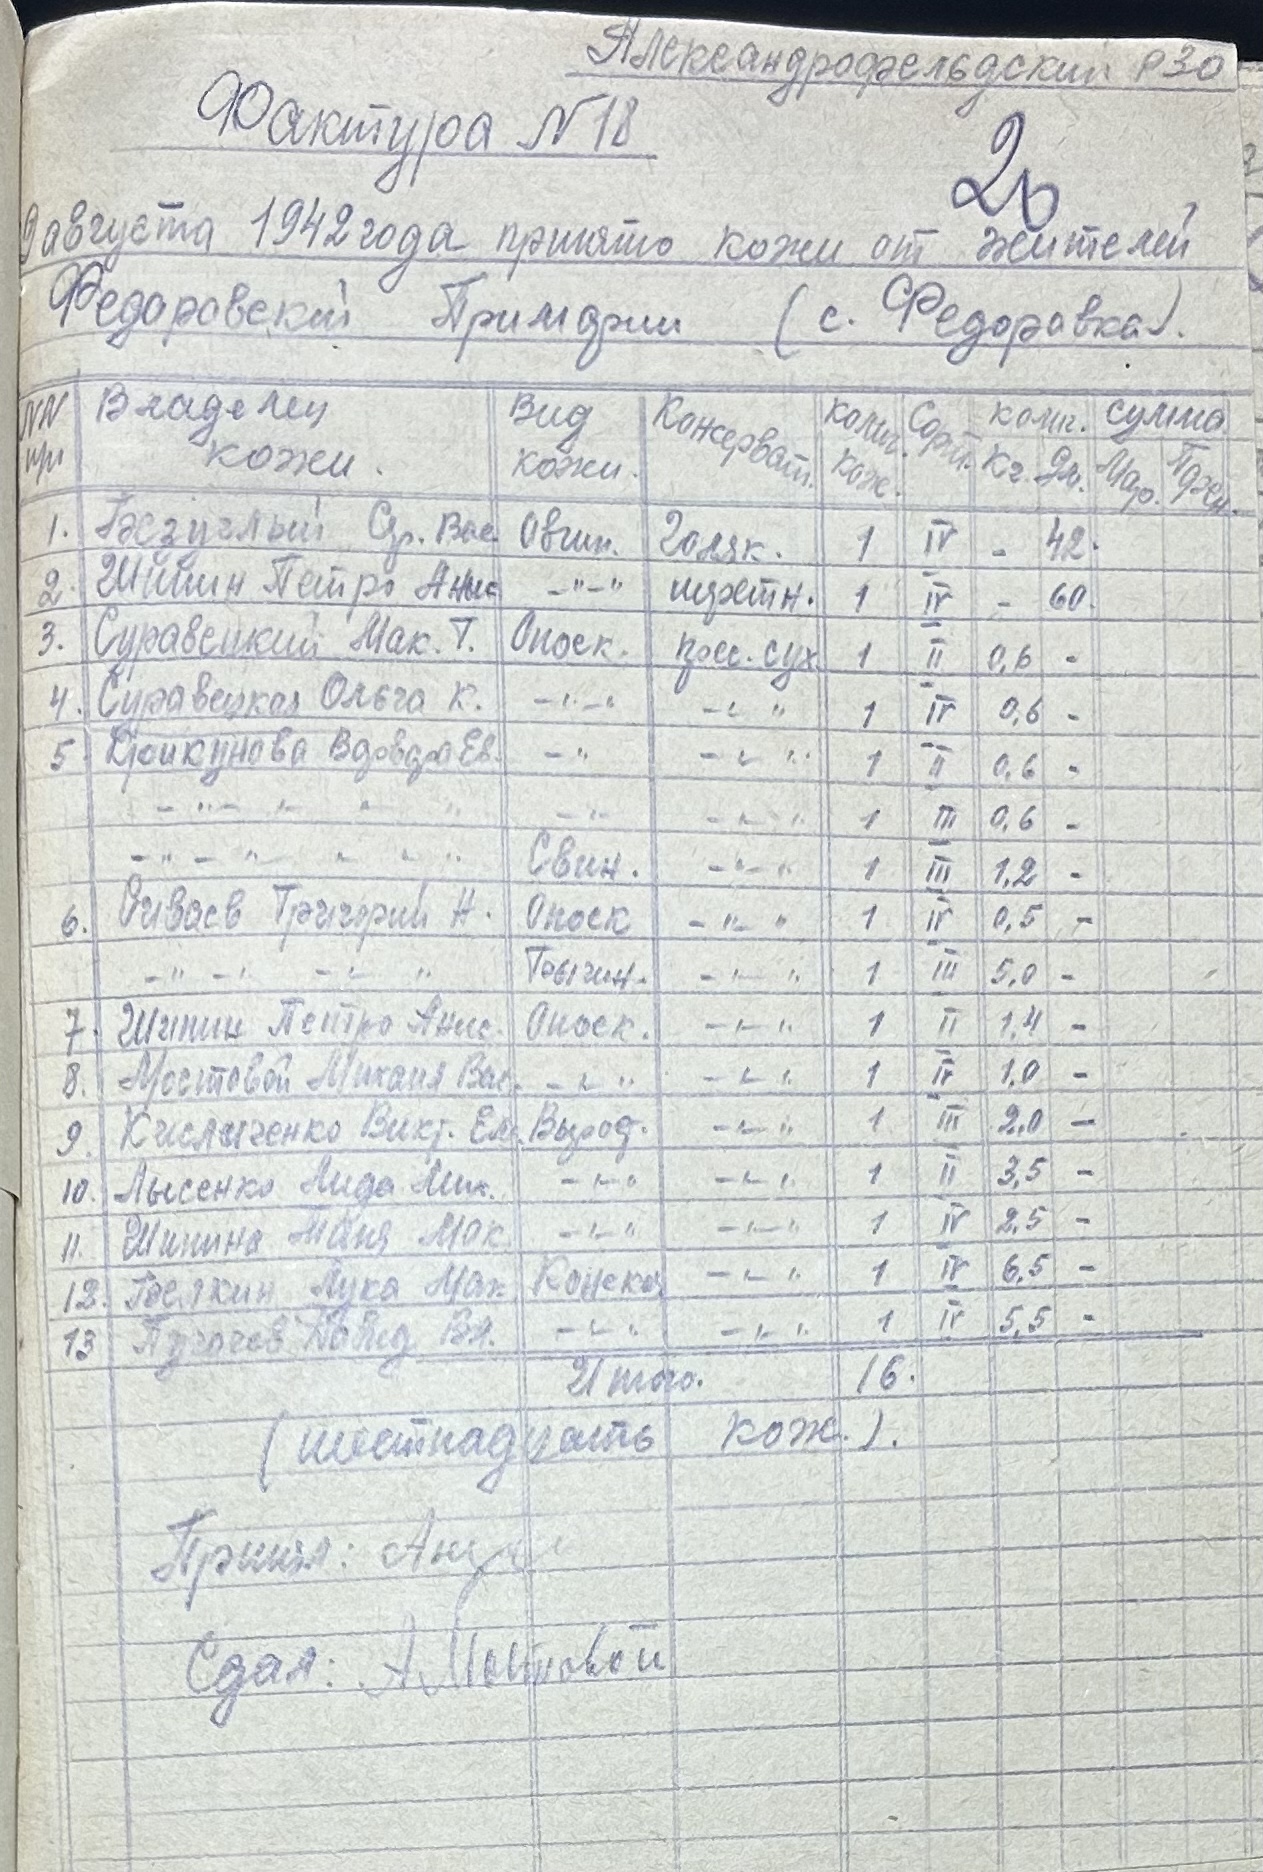 Александрофельдский РЗО
Фактура N 18
26
9 августа 1942 года принято кожи от жителей
Федоровский Примарии (с. Федоровка).
NN пп Владелец кожи. Вид кожи. Консерват. колич. кож. Сорт. колич. Кг. Дм. сумма Мар. Пфен.
1. Беззуглый Вас. Овин. Голяк. 1 IV - 42.
2. Шипин Петро Анис. -"-" шерстн. 1 IV - 60.
3. Суравецкий Мак. Т. Опоек. прес. сух. 1 II 0,6 -
4. Суравецкая Ольга К. -"- -"- 1 IV 0,6 -
5. Ев. -" -"- 1 II 0,6 -
-"- " " " -"- -"- 1 III 0,6 -
-"- " " " Свин. -"- 1 III 1,2 -
6. Григорий Н. Опоек -"- 1 IV 0,5 -
-"- -"- -"- " Бычин. -"- 1 III 5,0 -
7. Шипин Петро Анис. Опоек. -"- 1 II 1,4 -
8. Мостовой Михаил Вас. -"- -"- 1 IV 1,0 -
9. Кисличенко Викт. Ем. Вырост. -"- 1 III 2,0 -
10. Лысенко Лида Мих. -"- -"- 1 II 3,5 -
11. Шипина Маня Мак. -"- -"- 1 IV 2,5 -
12. Белкин Лука Мах. Конска. -"- 1 IV 6,5 -
13 Пугачев Вл. -"- -"- 1 IV 5,5 -
Итого. 16.
(шестнадцать кож.).
Принял:
Сдал: А Мостовой